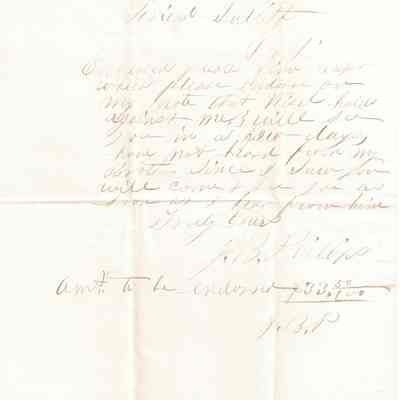 Friend Sutliff
Enclosed please find
which please endorse on
my note that Mr. holds
against me. I will see
you in a few days,
have not heard from my
since I saw you
will come & see you as
soon as I hear from him
Truly Yours
J. B. Phillips
Amt. to be endorsed $33.50/100
J. B. P